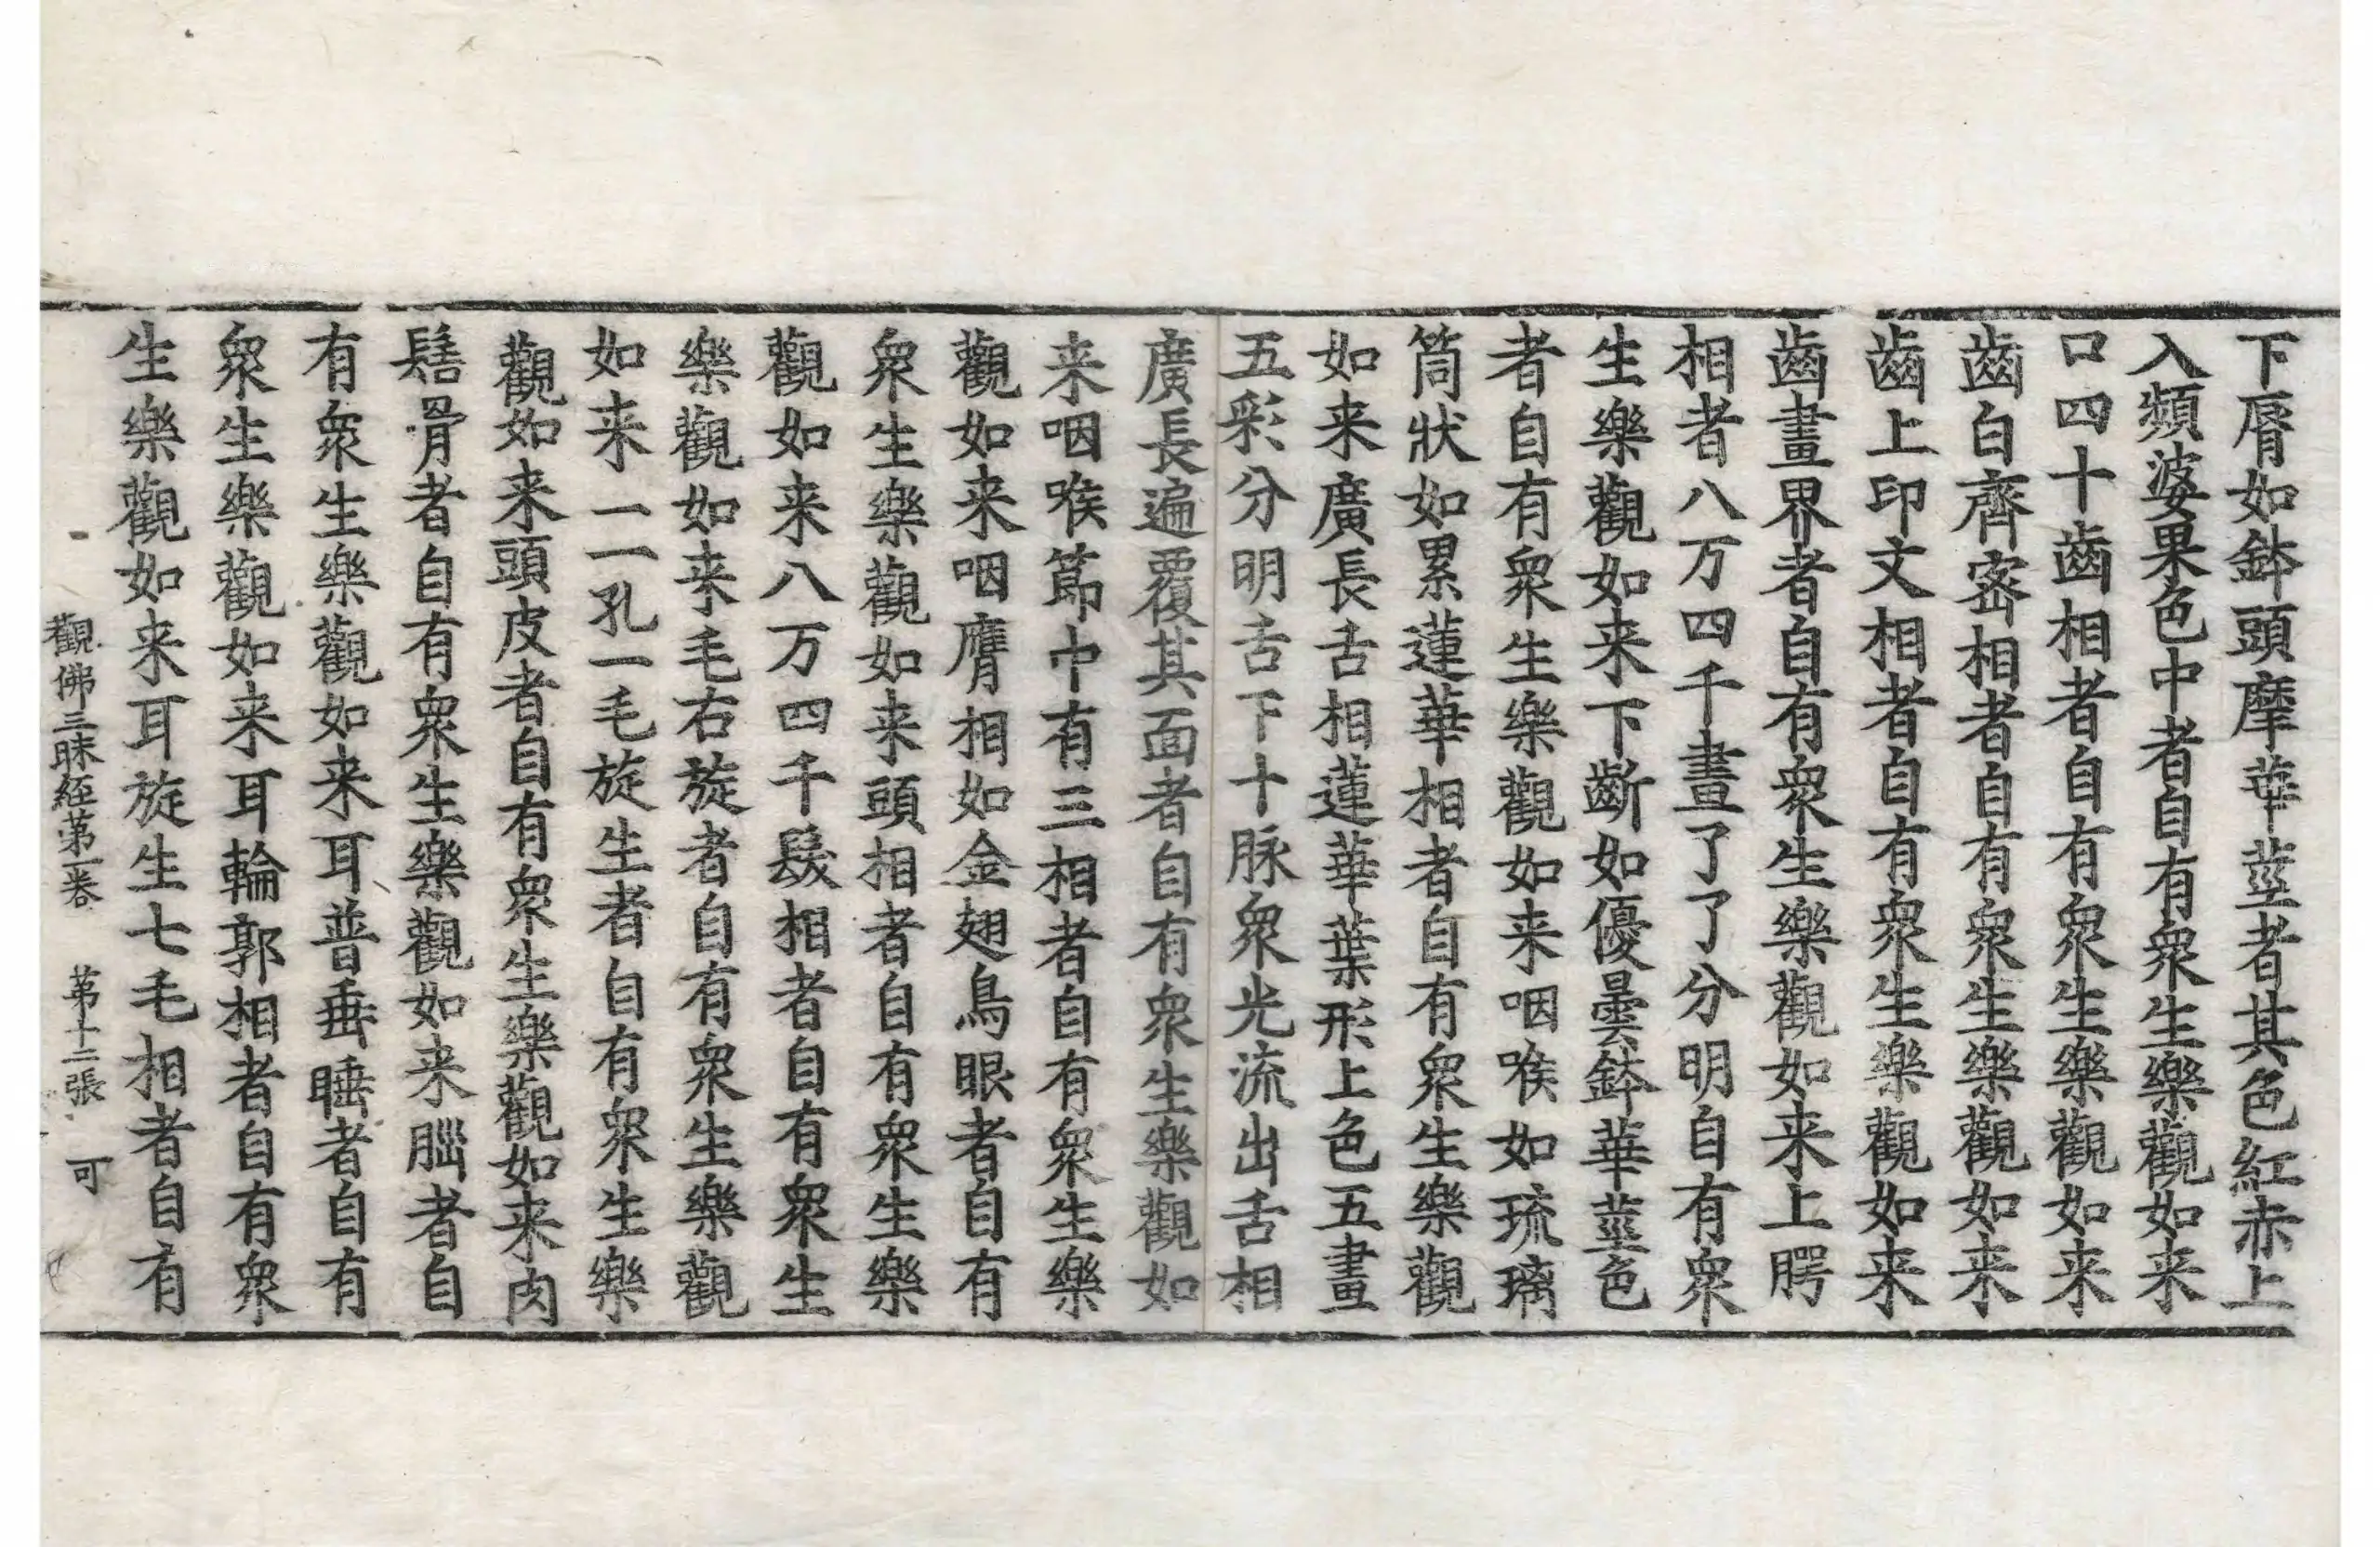 下脣如鉢頭摩華莖者其色紅赤上
入頻婆果色中者自有衆生樂觀如来
口四十齒相者自有衆生樂觀如来
齒白齊宻相者自有衆生樂觀如来
齒上印文相者自有衆生樂觀如来
齒畫界者自有衆生樂觀如来上腭
相者八万四千畫了了分明自有衆
生樂觀如来下齗如優曇鉢華莖色
者自有衆生樂觀如来咽喉如琉璃
筒狀如累蓮華相者自有衆生樂觀
如来廣長舌相蓮華葉形上色五畫
五彩分明舌下十脉衆光流出舌相
廣長遍覆其面者自有衆生樂觀如
来咽喉節中有三相者自有衆生樂
觀如来咽膺相如金翅鳥眼者自有
衆生樂觀如来頭相者自有衆生樂
觀如来八万四千髮相者自有衆生
樂觀如来毛右旋者自有衆生樂觀
如来一一孔一毛旋生者自有衆生樂
觀如来頭皮者自有衆生樂觀如来肉
髻骨者自有衆生樂觀如来腦者自
有衆生樂觀如来耳普垂睡者自有
衆生樂觀如来耳輪郭相者自有衆
生樂觀如来耳旋生七毛相者自有
觀佛三昧經第一卷 第十二張 可